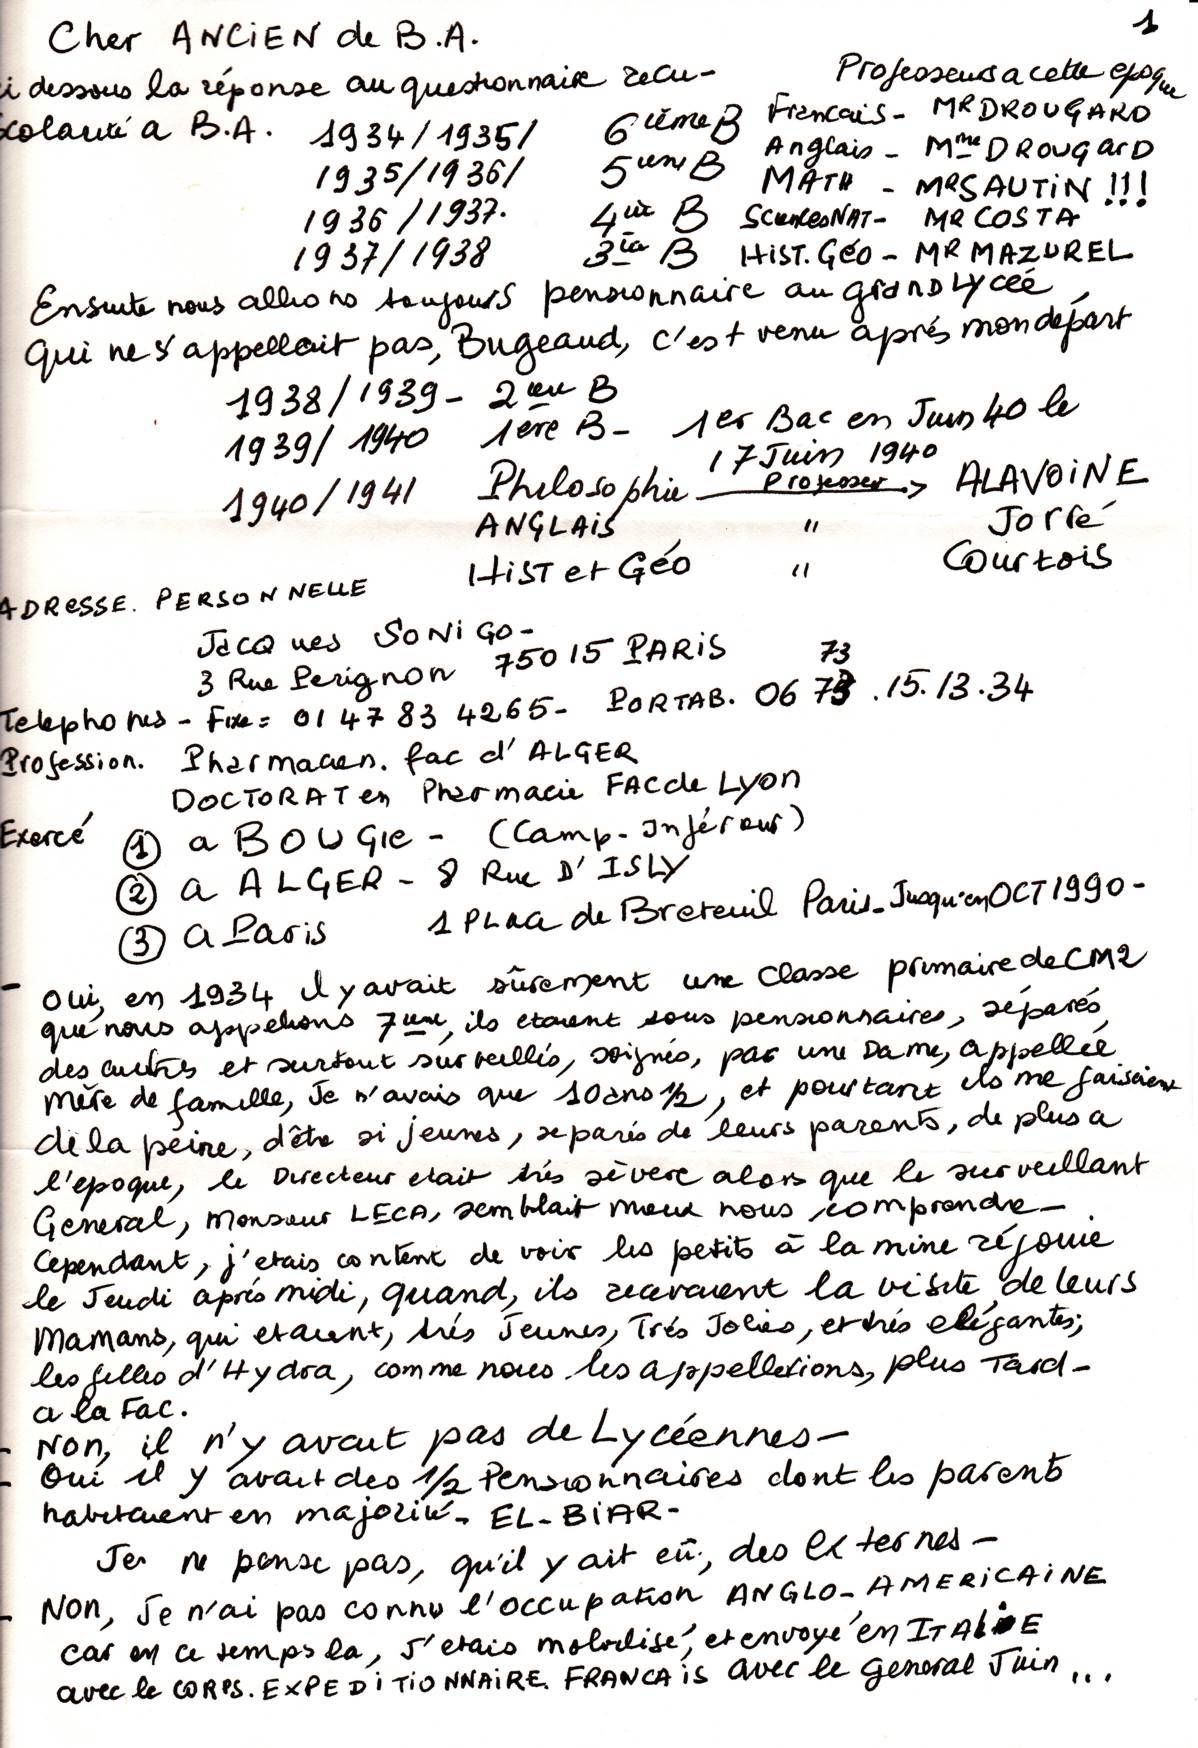 1
Cher ANCiEN de B.A.
i dessous la réponse au questionnaire recu-
Professeurs a cette epoque
colarité a B.A. 1934/1935/ 6ième B Francais - MR DROUGARD
Anglais - Mme DROUGARD
1935/1936/ 5ième B MATH - MR SAUTiN !!!
1936/1937. 4ie B SciencesNAT- MR COSTA
1937/1938 3ie B HiST. Géo - MR MAZUREL
Ensuite nous allions toujours pensionnaire au grand Lycéé
Qui ne s'appellait pas, Bugeaud, c'est venu aprés mon départ
1938/1939 - 2eme B
1939/1940 1ère B - 1er Bac en Juin 40 le
17 Juin 1940
1940/1941 Philosophie Professer → ALAVOiNE
ANGLAiS " Jorré
HiST et Géo " Courtois
ADResSE. PERSONNELLE
Jacques SONiGO -
3 Rue Perignon 75015 PARiS
73
Telephones - Fixe = 01 47 83 4265 - PORTAB. 06 73 .15.13.34
Profession. Pharmacien. fac d'ALGER
DOCTORAT en Pharmacie FAC de Lyon
Exercé ① a BOUGIe - (Camp-Inférieur)
② a ALGER - 8 Rue D'ISLY
③ a Paris 1 Place de Breteuil Paris - Jusqu'en OCT 1990 -
- oui, en 1934 il y avait sûrement une classe primaire de CM2
que nous appelions 7eme, ils etaient tous pensionnaires, séparés
des autres et surtout surveillés, soignés, par une Dame, appellée
mère de famille, Je n'avais que 10 ans 1/2, et pourtant ils me faisaient
de la peine, d'être si jeunes, separés de leurs parents, de plus a
l'epoque, le Directeur etait trés sévere alors que le surveillant
General, Monsieur LECA, semblait mieux nous comprendre -
Cependant, j'etais content de voir les petits à la mine réjouie
le Jeudi aprés midi, quand, ils recevaient la visite de leurs
Mamans, qui etaient, trés Jeunes, Trés Jolies, et trés elégantes;
les filles d'Hydra, comme nous les appellerions, plus Tard -
a la Fac.
- Non, il n'y avait pas de Lycéennes -
- Oui il y avait des 1/2 Pensionnaires dont les parents
habitaient en majorité - EL-BiAR -
Je ne pense pas, qu'il y ait eû, des externes -
- Non, Je n'ai pas connu l'occupation ANGLO-AMERiCAiNE
car en ce temps la, J'etais mobilisé, et envoyé en ITALiE
avec le CORPS. EXPEDiTiONNAiRE. FRANCAiS avec le general Juin ...